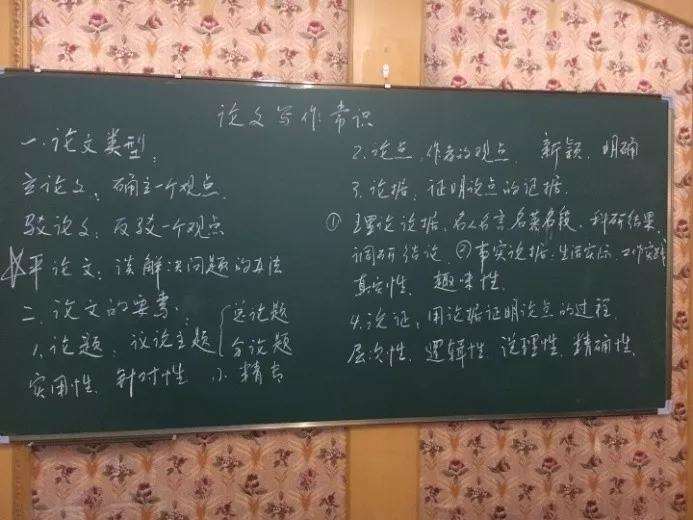 论文写作常识
一.论文类型:
立论文、确立一个观点.
驳论文、反驳一个观点
☆评论文:谈解决问题的办法
二.论文的要素:
1.论题、议论主题{总论题
分论题
实用性、针对性 小 精专
2.论点.作者的观点. 新颖、明确
3.论据、证明论点的证据.
①理论论据、名人名言 名著名段、科研结果
调研结论 ②事实论据:生活实际、工作实践
真实性、趣味性
4.论证、用论据证明论点的过程.
层次性、逻辑性 说理性、精确性.